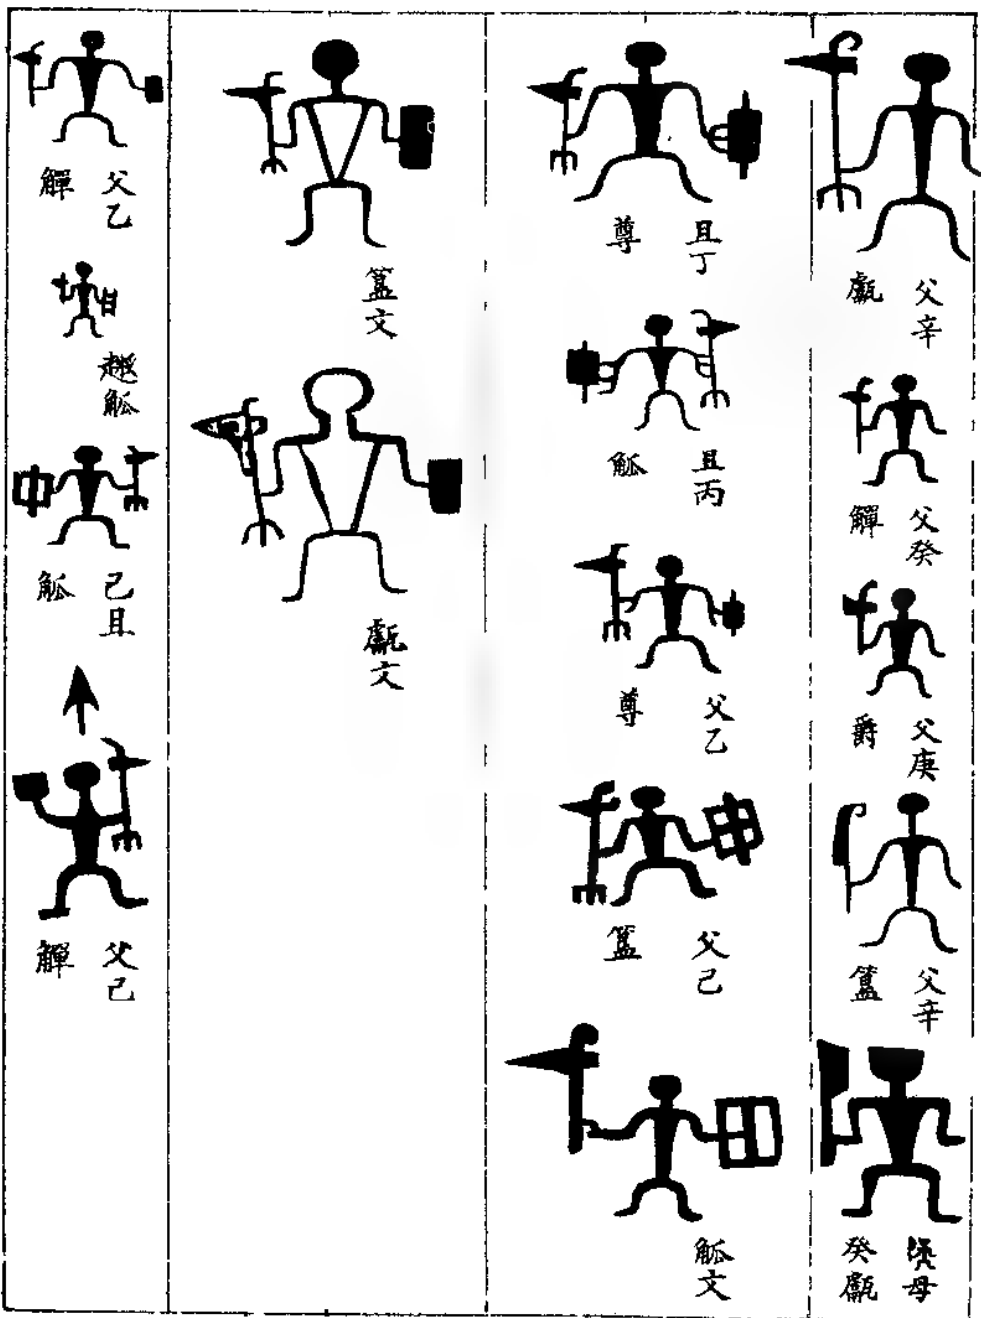 父辛
甗
父癸
觶
父庚
爵
父辛
簋
母
癸甗
且丁
尊
且丙
觚
父乙
尊
父己
簋
觚文
簋文
甗文
父乙
觶
觚
己且
觚
父己
觶